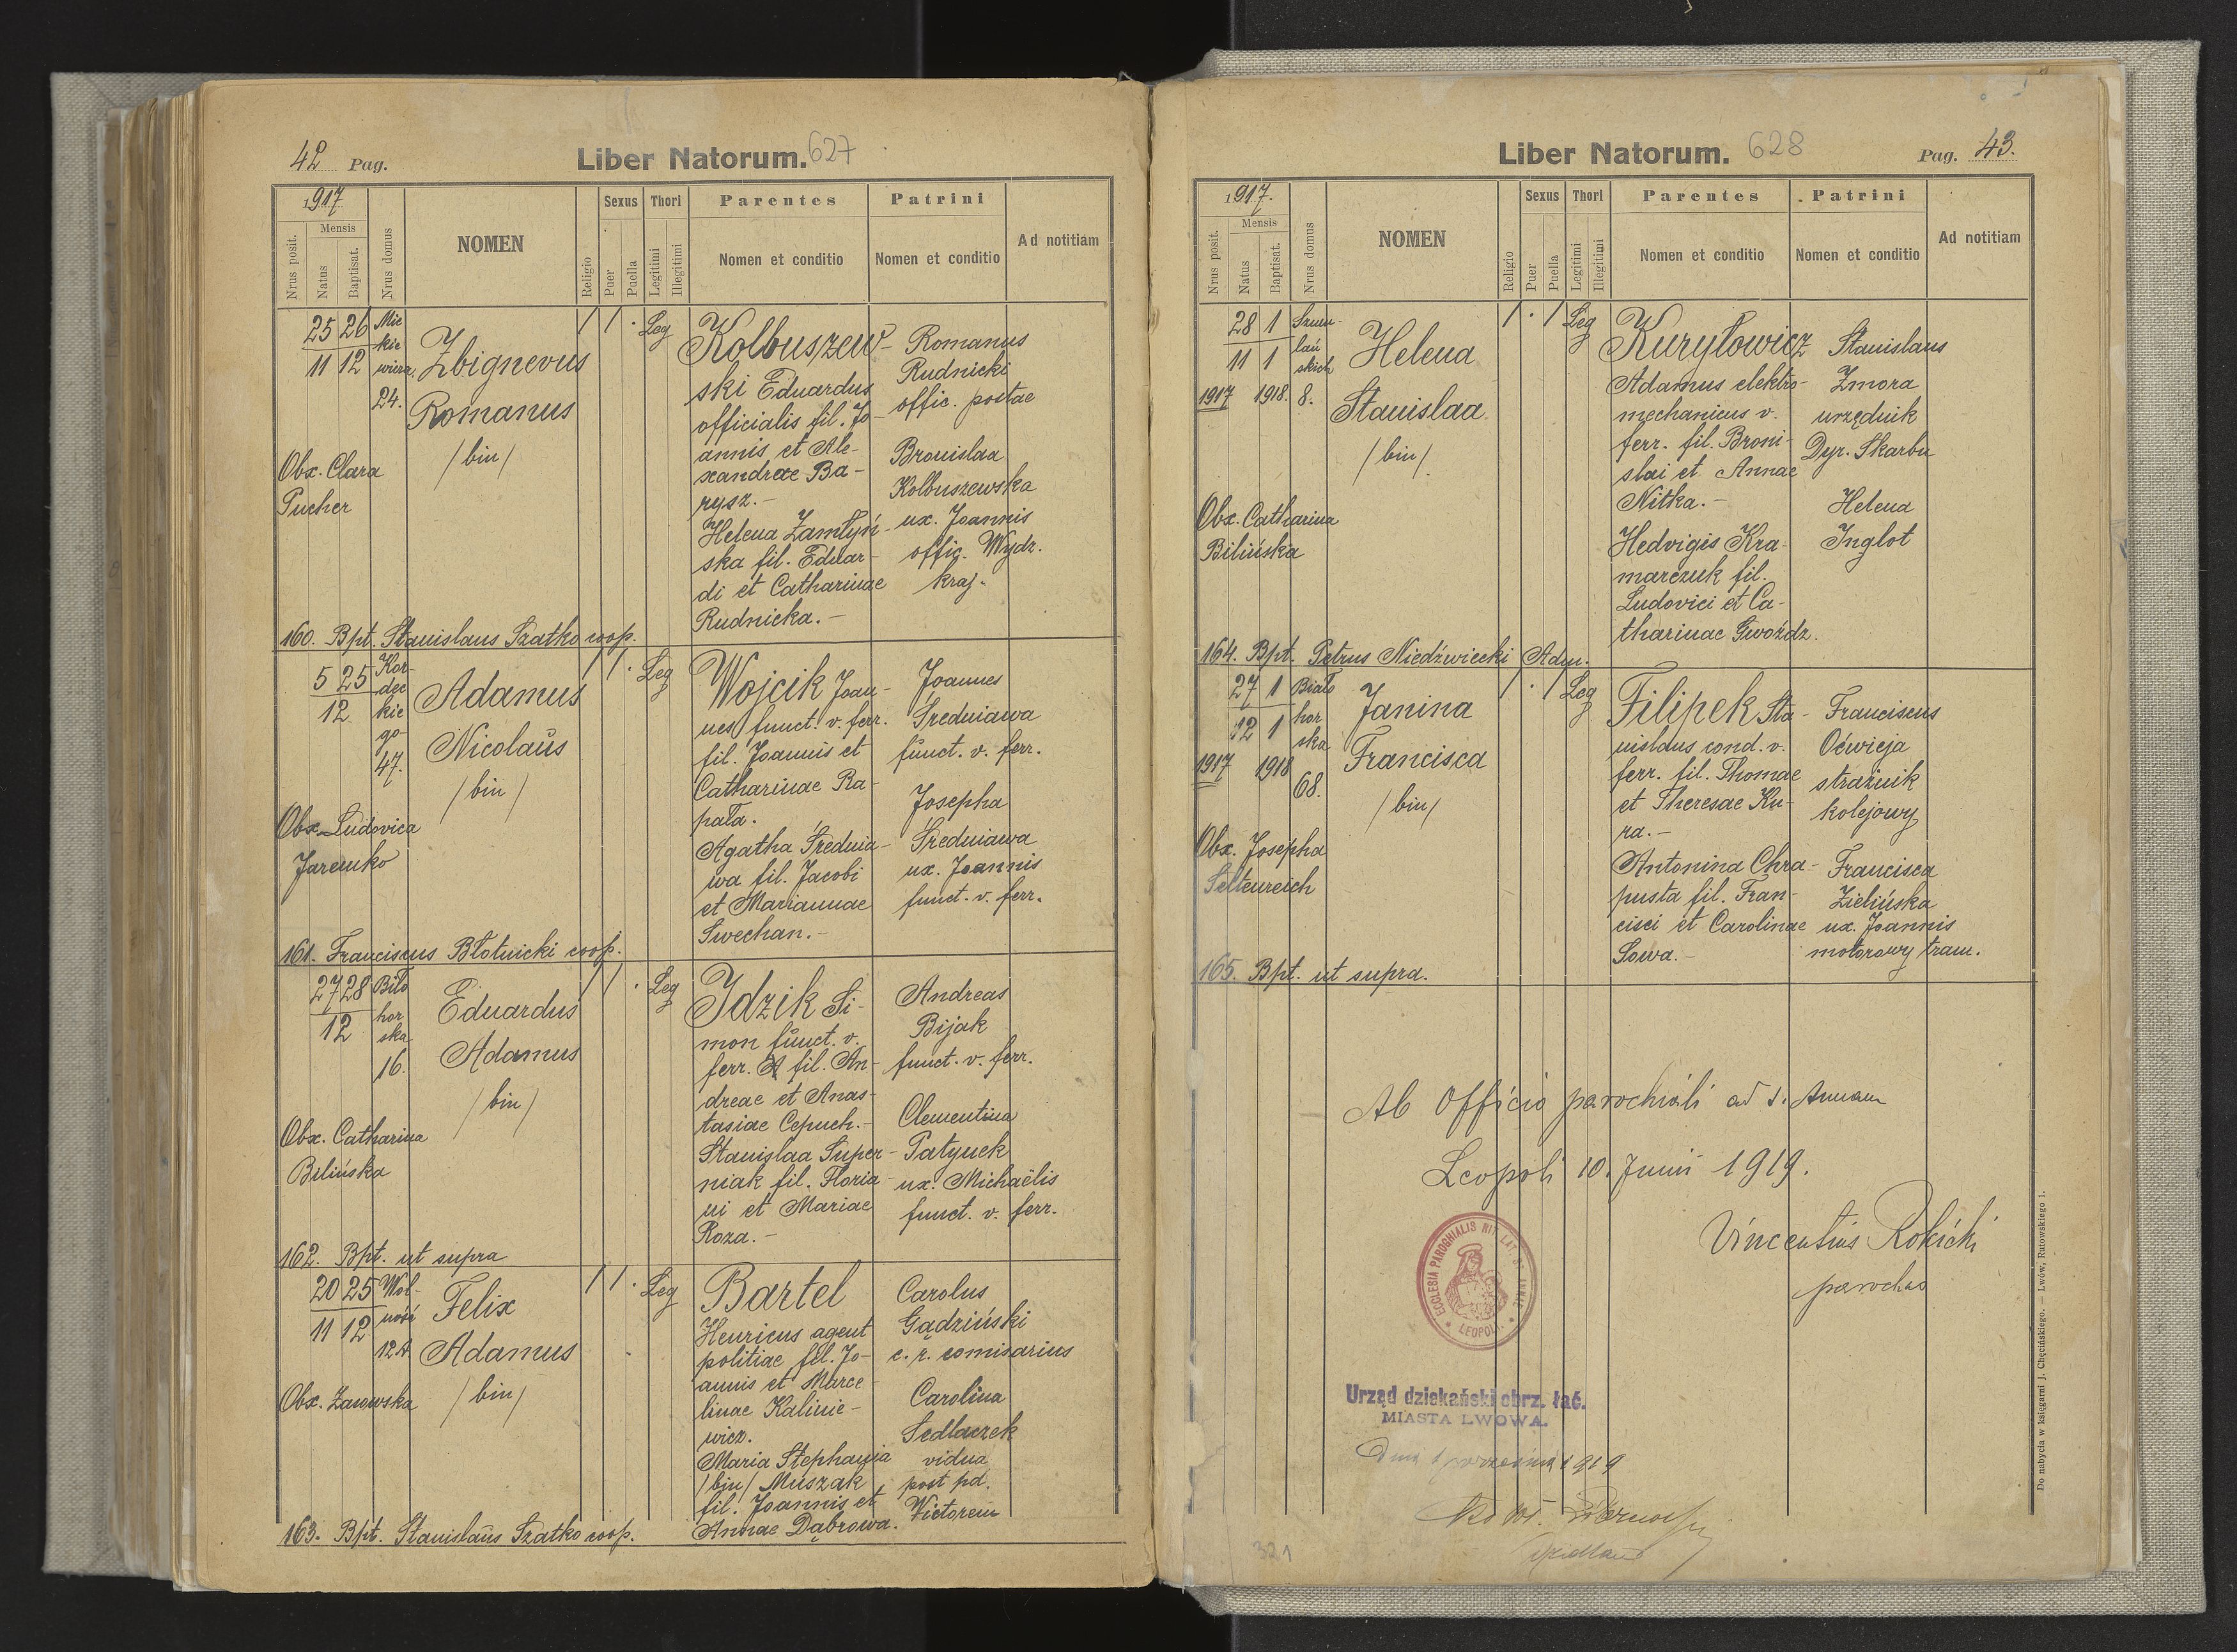 42 Pag.
Liber Natorum. 627
1917
Mensis
Nrus posit.
Natus
Baptisat.
Nrus domus
NOMEN
Religio
Sexus
Puer
Puella
Thori
Legitimi
Illegitimi
Parentes
Nomen et conditio
Patrini
Nomen et conditio
Ad notitiam
25 26
11 12
Mic
kie
wicza
24.
Zbignevus
Romanus
/bin/
1 1 · Leg
Kolbuszew-
ski Eduardus
officialis fil. Jo-
annis et Ale-
xandrae Ba-
rysz.-
Helena Zamłyń-
ska fil. Eduar-
di et Catharinae
Rudnicka.-
Romanus
Rudnicki
offic. postae
Bronislaa
Kolbuszewska
ux. Joannis
offic. Wydz.
kraj.
Obx. Clara
Pucher
160. Bpt. Stanislaus Szatko coop.
5 25
12
Kor-
dec
kie
go
47.
Adamus
Nicolaus
/bin/
1 1 · Leg
Wojcik Joan-
nes funct. v. ferr.
fil. Joannis et
Catharinae Ra-
pała.
Agatha Średnia-
wa fil. Jacobi
et Mariannae
Swechan.-
Joannes
Średniawa
funct. v. ferr.
Josepha
Średniawa
ux. Joannis
funct. v. ferr.
Obx. Ludovica
Jaremko
161. Franciscus Błotnicki coop.
27 28
12
Biło
hor
ska
16.
Eduardus
Adamus
/bin/
1 1 · Leg
Idzik Si-
mon funct. v.
ferr. fil. An-
dreae et Anas-
tasiae Cepuch.-
Stanislaa Super-
niak fil. Floria-
ni et Mariae
Roza.-
Andreas
Bijak
funct. v. ferr.
Clementina
Patynek
ux. Michaëlis
funct. v. ferr.
Obx. Catharina
Bilińska
162. Bpt. ut supra
20 25
11 12
Wol-
ność
12A
Felix
Adamus
/bin/
1 1 · Leg
Bartel
Henricus agent
politiae fil. Jo-
annis et Marce-
linae Kalinie-
wicz.
Maria Stephania
/bin/ Muszak
fil. Joannis et
Annae Dąbrowa.
Carolus
Gądziński
c. r. comisarius
Carolina
Sedlaczek
vidua
post pd.
Victorem
Obx.
163. Bpt. Stanislaus Szatko coop.
Liber Natorum. 628
Pag. 43.
1917.
Mensis
Nrus posit.
Natus
Baptisat.
Nrus domus
NOMEN
Religio
Sexus
Puer
Puella
Thori
Legitimi
Illegitimi
Parentes
Nomen et conditio
Patrini
Nomen et conditio
Ad notitiam
28 1
11 1
1917 1918.
Szum-
lań
skich
8.
Helena
Stanislaa
/bin/
1 · 1 Leg
Kuryłowicz
Adamus elektro-
mechanicus v.
ferr. fil. Broni-
slai et Annae
Nitka.-
Hedvigis Kra-
marczuk fil.
Ludovici et Ca-
tharinae Gwoźdz.
Stanislaus
Zmora
urzędnik
Dyr. Skarbu
Helena
Inglot
Obx. Catharina
Bilińska
164. Bpt. Petrus Niedźwiecki Adm.
27 1
12 1
1917 1918
Biało
hor
ska
68.
Janina
Francisca
/bin/
1 · 1 Leg
Filipek Sta-
nislaus cond. v.
ferr. fil. Thomae
et Theresae Ku-
ra.-
Antonina Chra-
pusta fil. Fran-
cisci et Carolinae
Sowa.-
Franciscus
Oćwieja
strażnik
kolejowy
Francisca
Zielińska
ux. Joannis
motorowy tram.
Obx. Josepha
Seltenreich
165. Bpt. ut supra.
Ab Officio parochiali ad S. Annam
Leopoli 10. Junii 1919.
Vincentius Rokicki
parochus
ECCLESIA PAROCHIALIS RIT. LAT. S. ANNAE
LEOPOLI.
Urząd dziekański obrz. łać.
MIASTA LWOWA.
Dnia 1 września 1919
Dziekan
321
Do nabycia w księgarni J. Chęcińskiego. — Lwów, Rutowskiego 1.